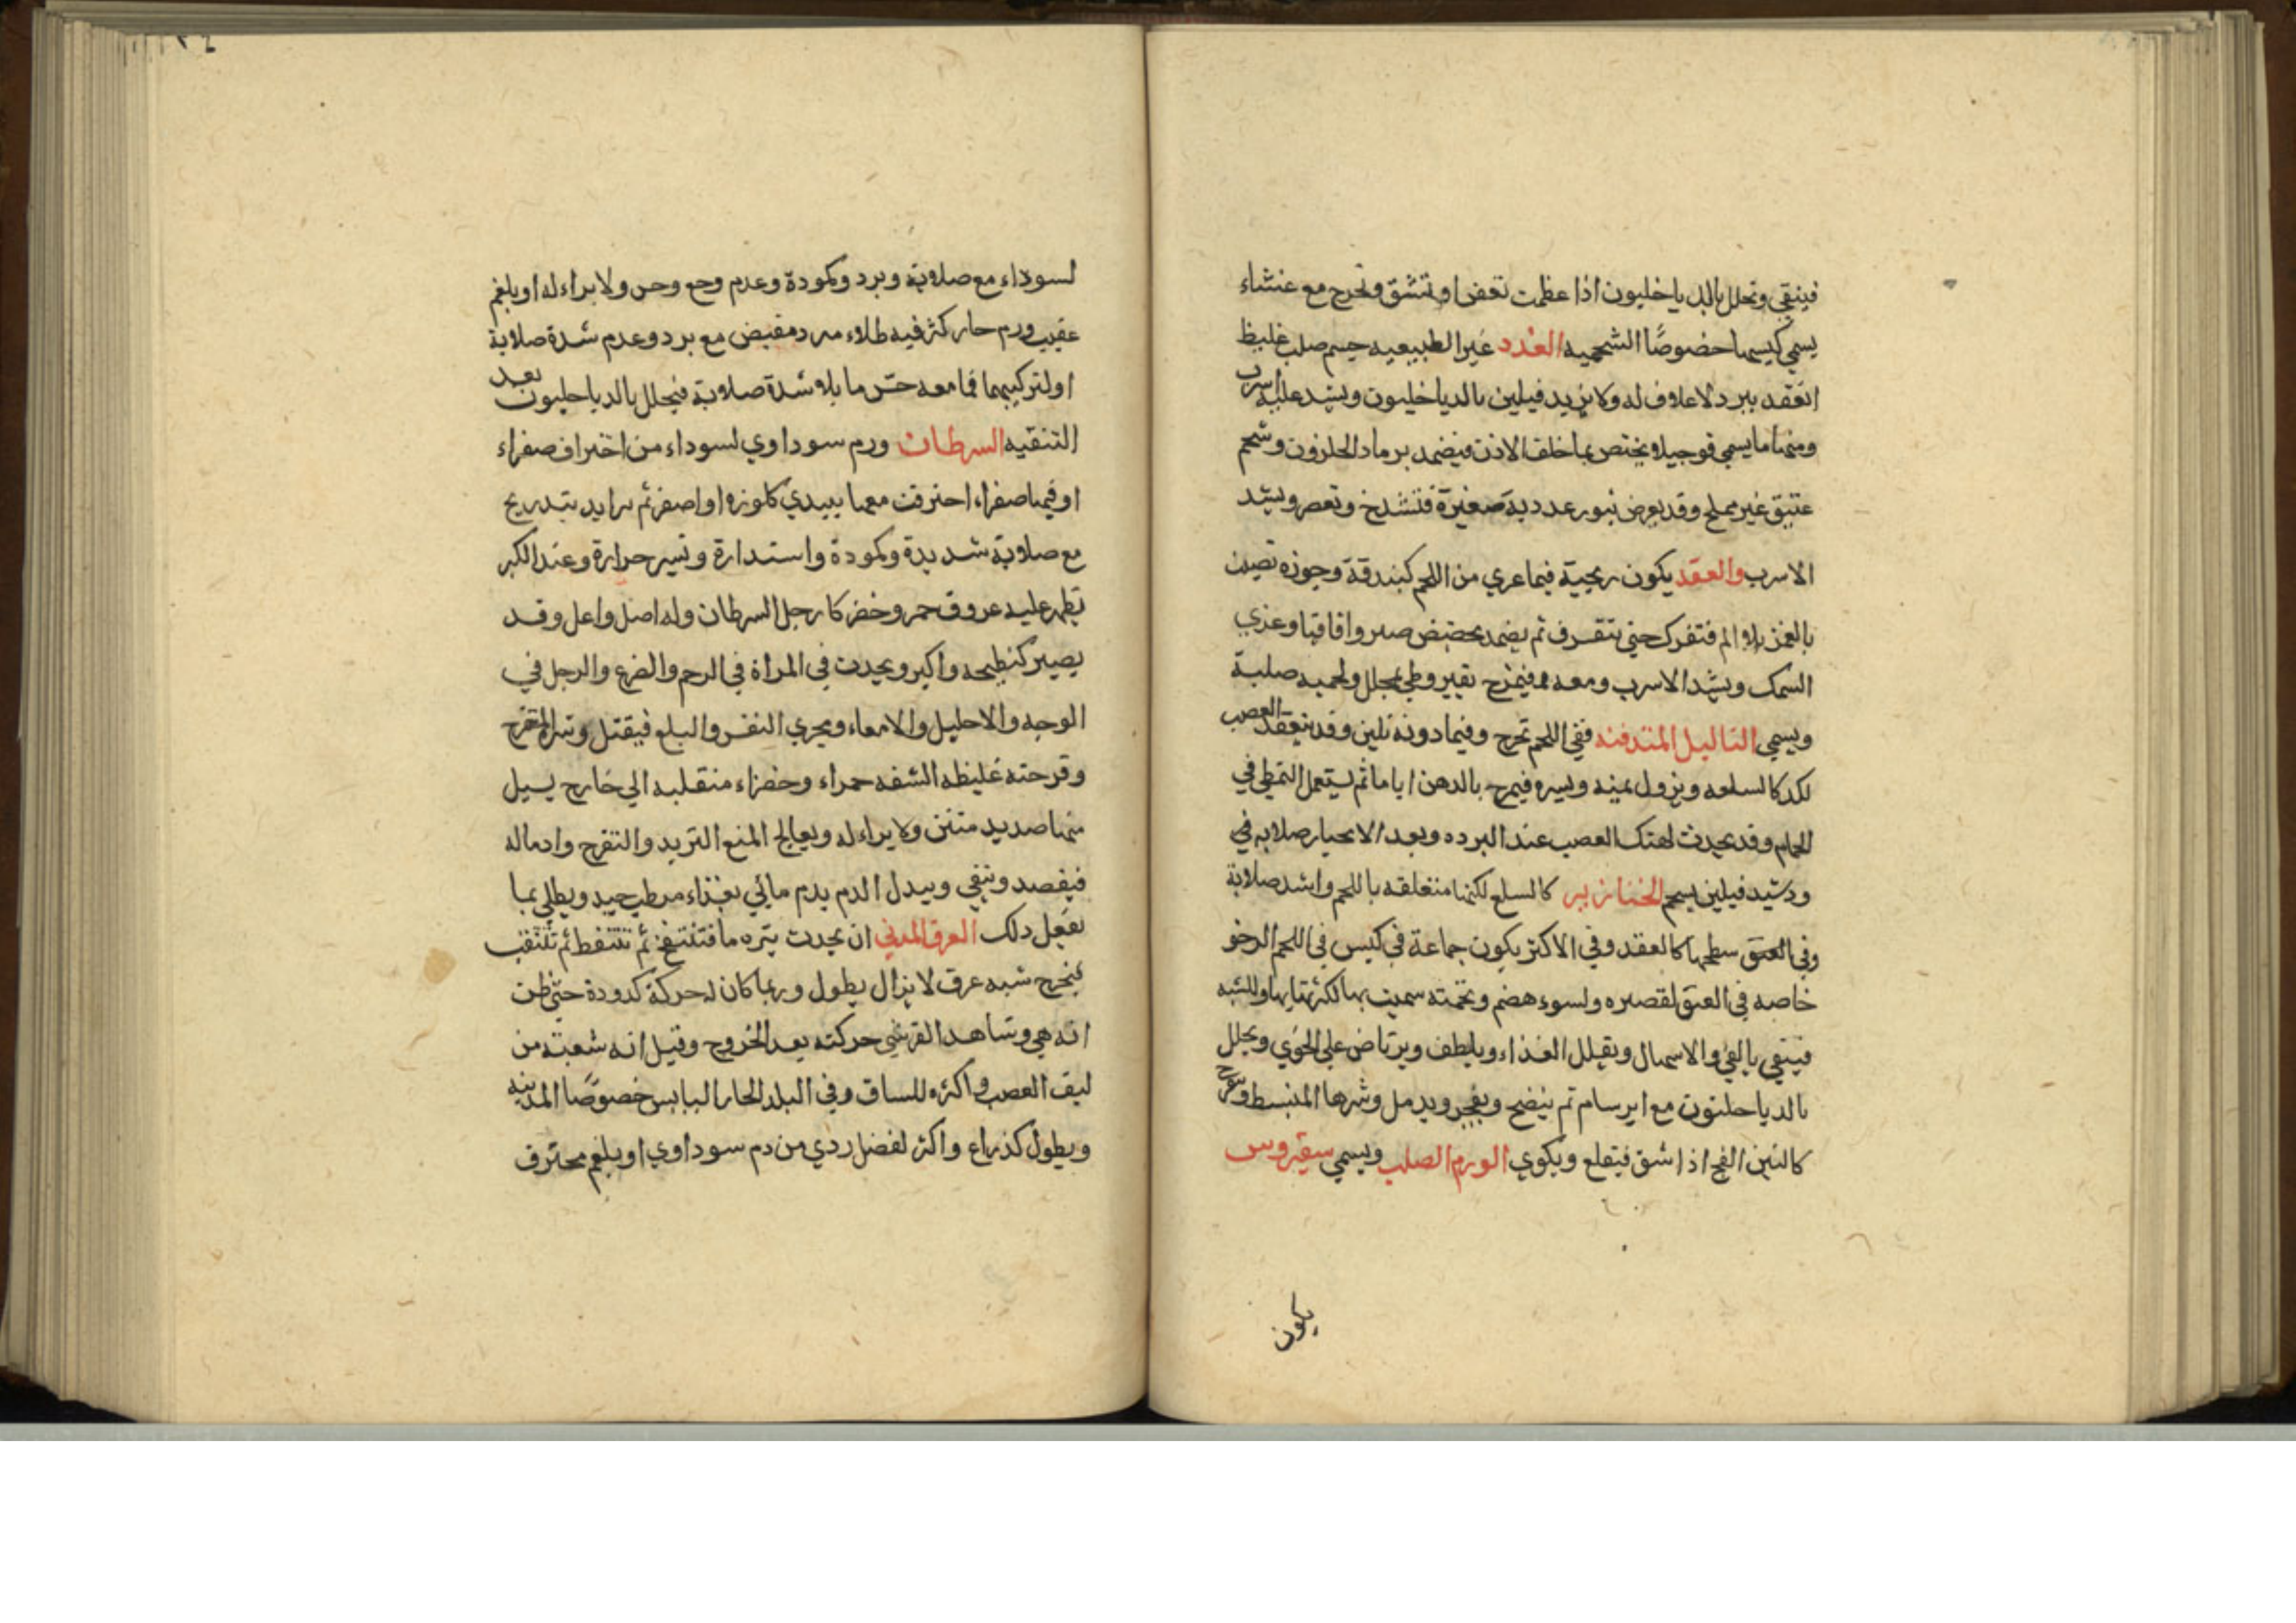 فينقي وتحلل بالدياخليون اذا عظمت تعفن او تنشق وتخرج مع غشاء
يسمي كيسها خصوصًا الشحميه الغدد غير الطبيعيه جسم صلب غليظ
انعقد ببرد لا غلاف له ولا يزيد فيلين بالدياخليون ويشد عليه اسرب
ومنها ما يسمي فوجيلا ويختص بما خلف الاذن فيضمد برماد الحلزون وشحم
عتيق غير مملح وقد يعرض بثور غدديه صغيرة فتشدخ وتعصر ويشد
الاسرب والعقد يكون ريحية فيما عري من اللحم كبندقة وجوزه
بالغمز بلا الم فتفرك حتي يتفرق ثم يضمد صبر واقاقيا وغري
السمك ويشد الاسرب ومعه فيمرخ بقيروطي محلل ولحميه صلبة
ويسمي التاليل المتدفنه ففي اللحم تخرج وفيما دونه تلين وقد يتعقد العصب
لكد كالسلعه ويزول يمينه ويسره فيمرخ بالدهن اياما ثم يستعمل التمطي في
الحمام وقد يحدث لهتك العصب عند البرده وبعد الانجبار صلابه في
ودشيد فيلين يسمي الخنازير كالسلع لكنها متعلقه باللحم واشد صلابة
وفي العنق سطحها كالعقد وفي الاكثر يكون جماعة في كيس في اللحم الرخو
خاصه في العنق لقصره ولسوء هضم وتخمته سميت بها لكثرتها بها وللشبه
فينقي بالقي والاسهال ويقلل الغذاء ويلطف ويرتاض علي الخوي ويحلل
بالدياحلتون مع ايرسام ثم ينضج ويفجر ويدمل وشرها المنبسط
كالتين الفج اذا شق فيقلع ويكوي الورم الصلب ويسمي سقيروس
يكون
لسوداء مع صلابة وبرد وكمودة وعدم وجع وحس ولا براء له او بلغم
عقيب ورم حار كثر فيه طلاء مبرد مقبض مع برد وعدم شدة صلابة
او لتركيبهما فما معه حس ما بلا شدة صلابة فيحلل بالدياحليون بعد
التنقيه السرطان ورم سوداوي لسوداء من احتراق صفراء
او فيها صفراء احترقت معها يبتدي كلوزه او اصغر ثم يزايد بتدريج
مع صلابة شديدة وكمودة واستدارة ويسير حرارة وعند الكبر
تظهر عليه عروق حمر وخضر كارجل السرطان وله اصل واعل وقد
يصير كبطيخه واكبر ويحدث في المراة في الرحم والضرع والرجل في
الوجه والاحليل والامعاء ومجري النفس والبلع فيقتل وشره المتقرح
وقرحته غليظه الشفه حمراء وخضراء منقلبه الي خارج يسيل
منها صديد منتن ولا براء له ويعالج المنع التزيد والتقرح وادماله
فيفصد وينقي ويبدل الدم بدم مائي بغذاء مرطب جيد ويطلي بما
يفعل دلك العرق المدني ان يحدث بثره ما فتنتفخ ثم تتنفط ثم تنثقب
فيخرج شبه عرق لا يزال يطول وربما كان له حركة كدودة حتي ظن
انه هي وشاهد القرشي حركته بعد الخروج وقيل انه شعبة من
ليف العصب واكثره للساق وفي البلد الحار اليابس خصوصًا المدينه
ويطول كذراع واكثر لفضل ردي من دم سوداوي او بلغم محترق